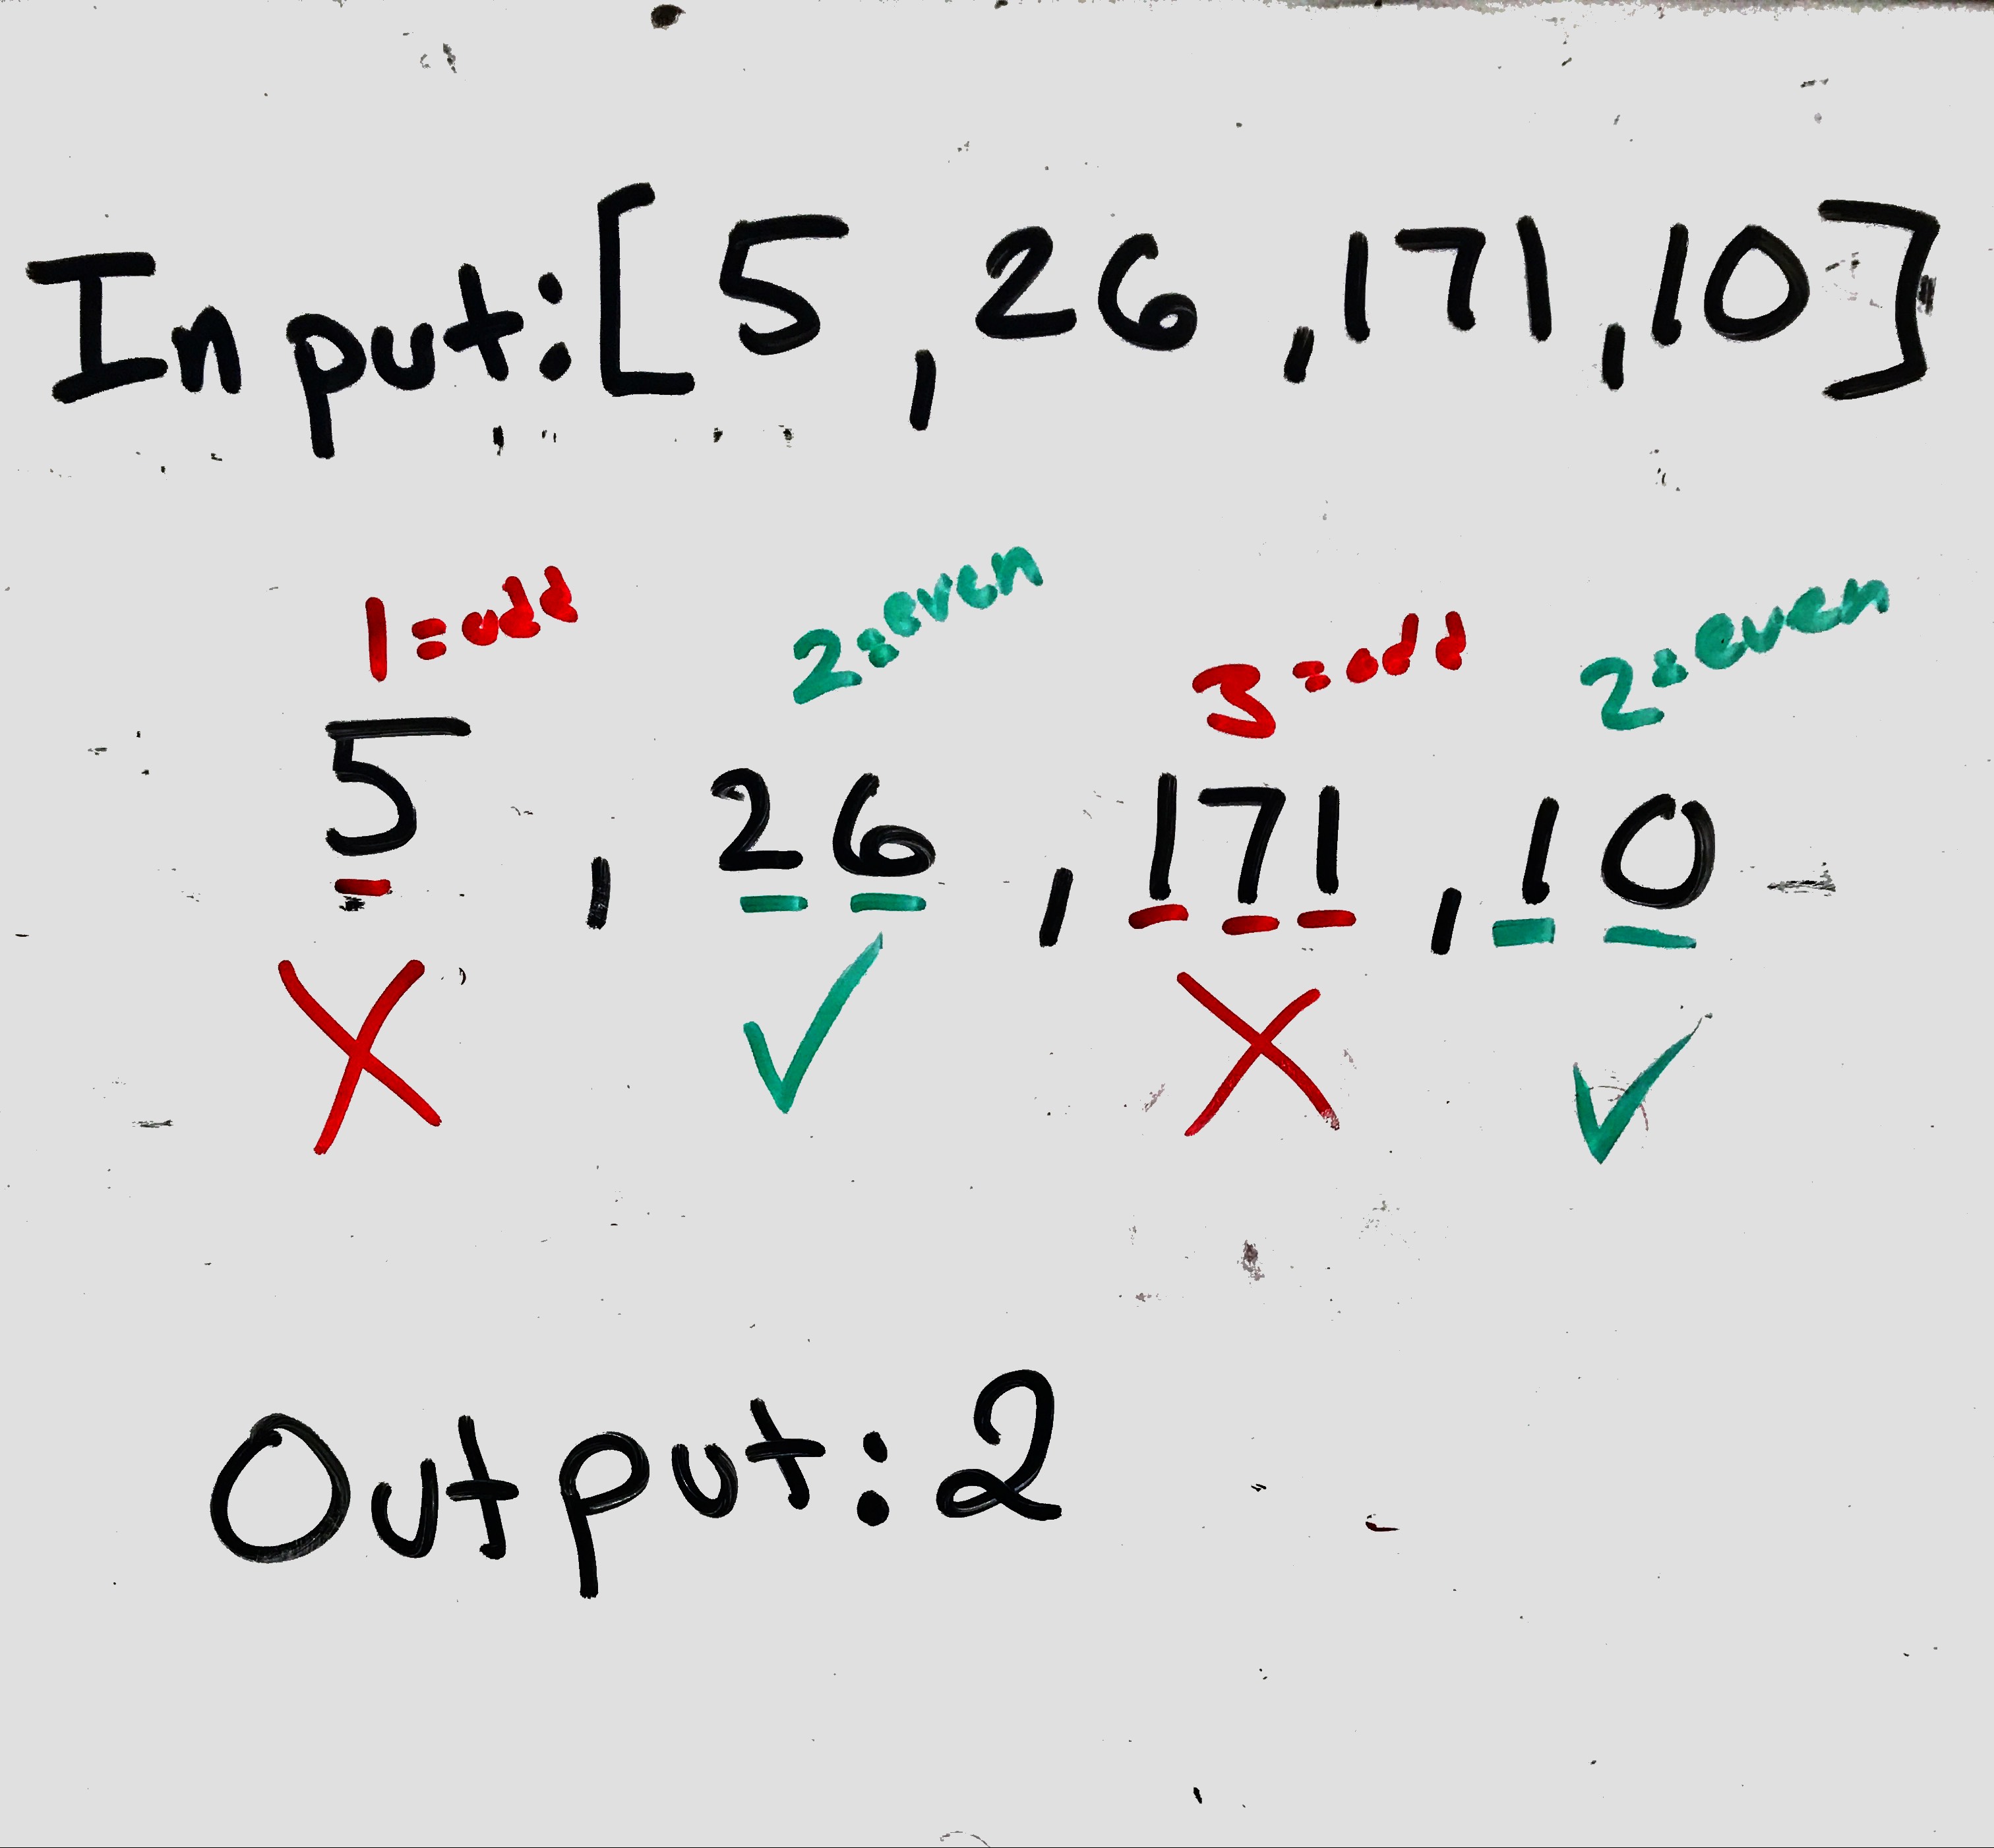 Input:[5,26,171,10]
1=odd 2=even 3=odd 2=even
5,26,171,10
Output:2